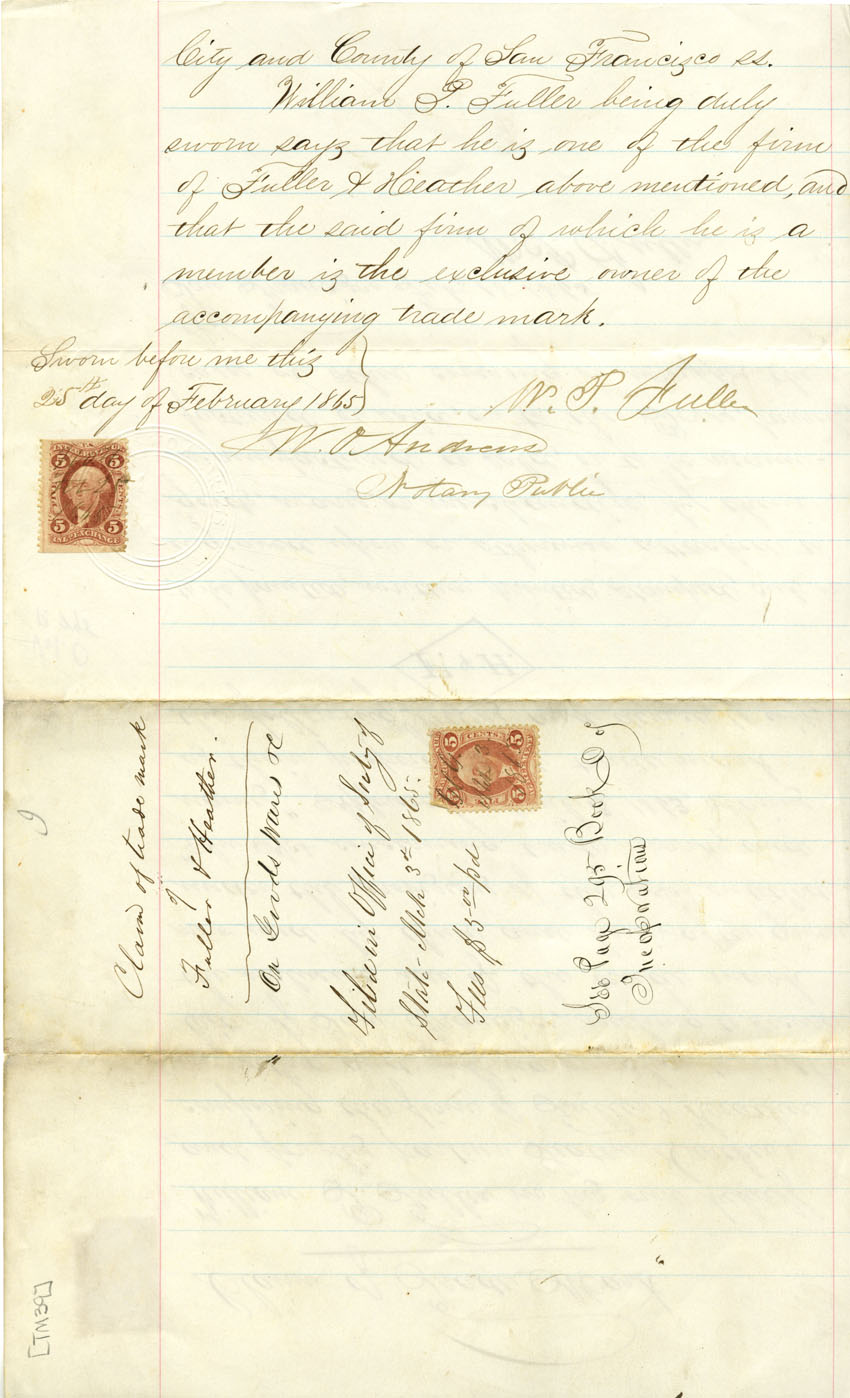 City and County of San Francisco ss.
William P. Fuller being duly
sworn says that he is one of the firm
of Fuller & Heather above mentioned, and
that the said firm of which he is a
member is the exclusive owner of the
accompanying trade mark.
Sworn before me this
25th day of February 1865
W. P. Fuller
W. O. Andrews
Notary Public
5 5
5 5
INL. EXCHANGE
Claim of trade mark
of
Fuller & Heather.
On Goods Wares &c
Filed in Office of Secty of
State Mch 3rd 1865.
Fees $5.00 pd
5 CENTS 5
5 5
See Page 295 Book 2 of
Incoporations
[TM39]